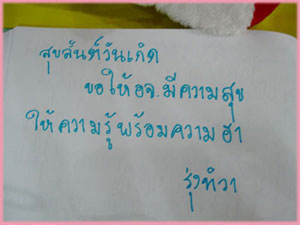 สุขสันต์วันเกิด
ขอให้อจ.มีความสุข
ให้ความรู้พร้อมความฮา
รุ่งทิวา